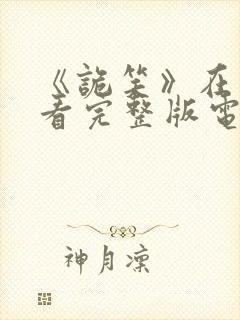 《詭笑》在
看完整版電
神月凜